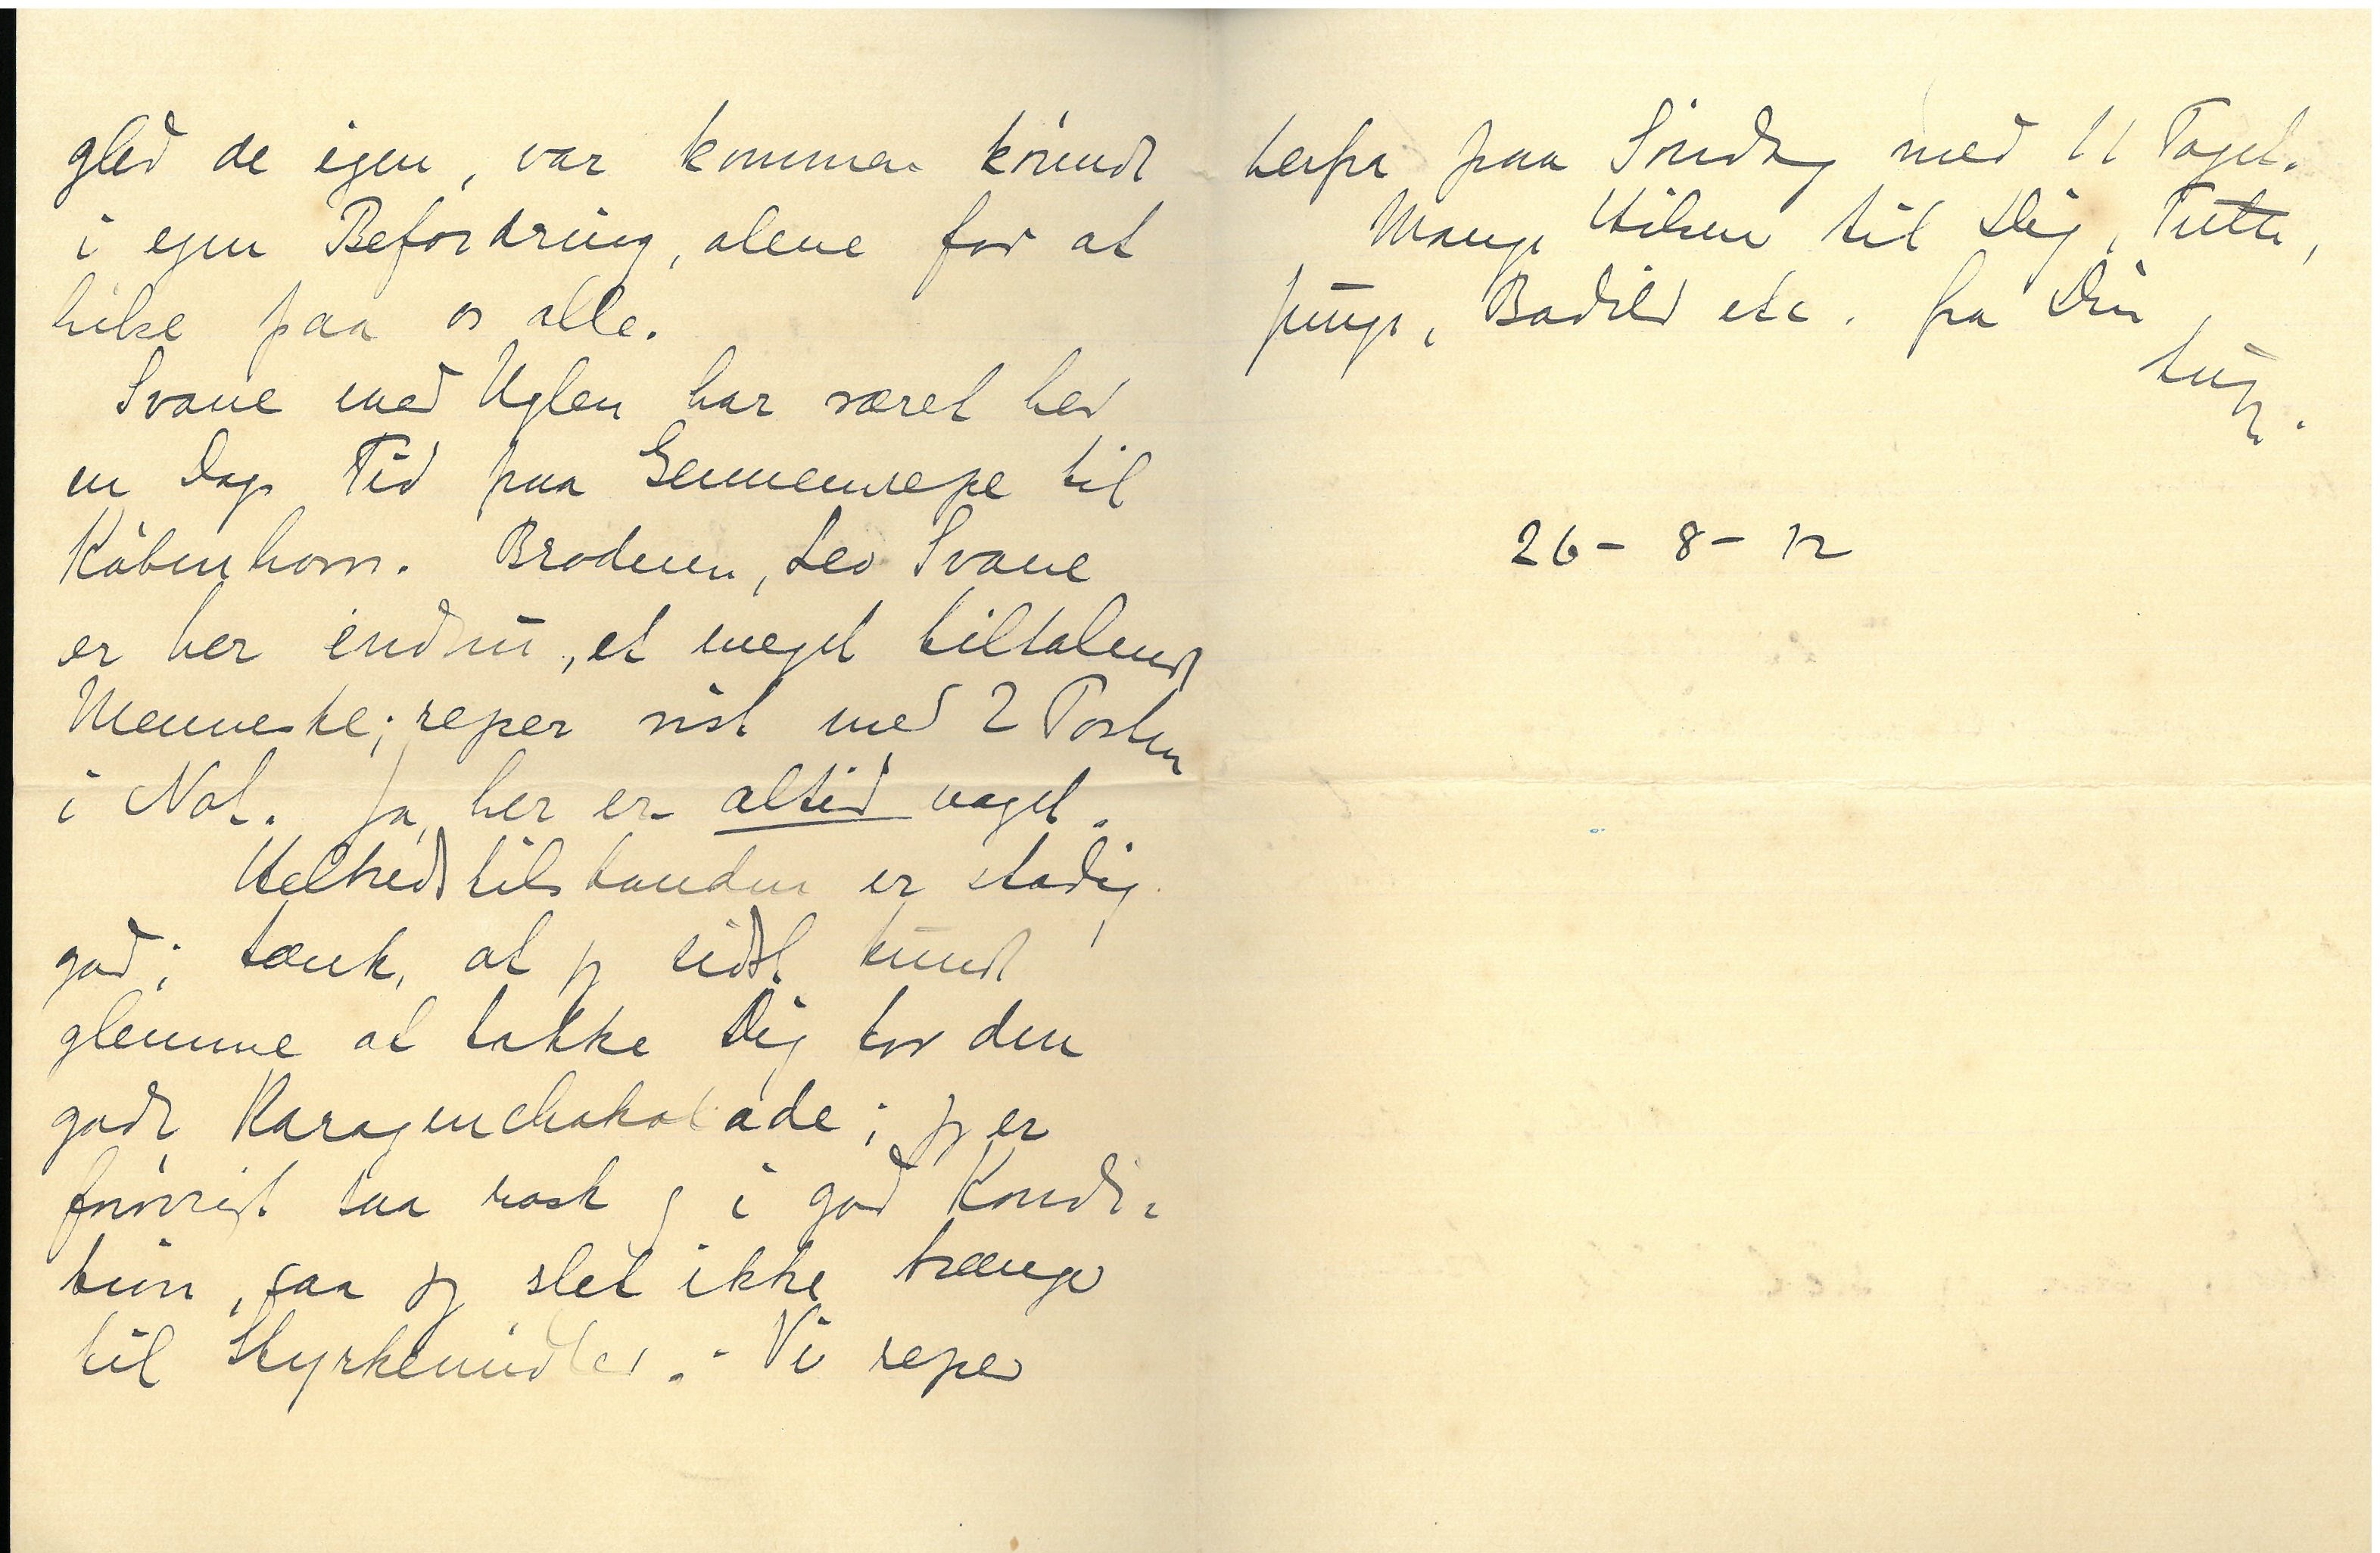 gled de igen, var kommen körende
i egen Befordring, alene for at
hilse paa os alle.
Svane med Uglen har været her
en Dags Tid paa Gennemrejse til
Köbenhavn. Broderen, Leo Svane
er her endnu, et meget tiltalende
Menneske; rejser vist med 2 Posten
i Nat. Ja, her er altid noget.
Helbredstilstanden er stadig
god; tænk, at jeg sidst kunde
glemme at takke Dig for den
gode Karagenchokolade; jeg er
forövrigt saa rask og i god Kondi-
tion, saa jeg slet ikke trænger
til Styrkemidler. - Vi rejser
herfra paa Söndag med 11 Toget.
Mange Hilsner til Dig, Tutte,
Junge, Bodild etc. fra Din
26 - 8 - 12